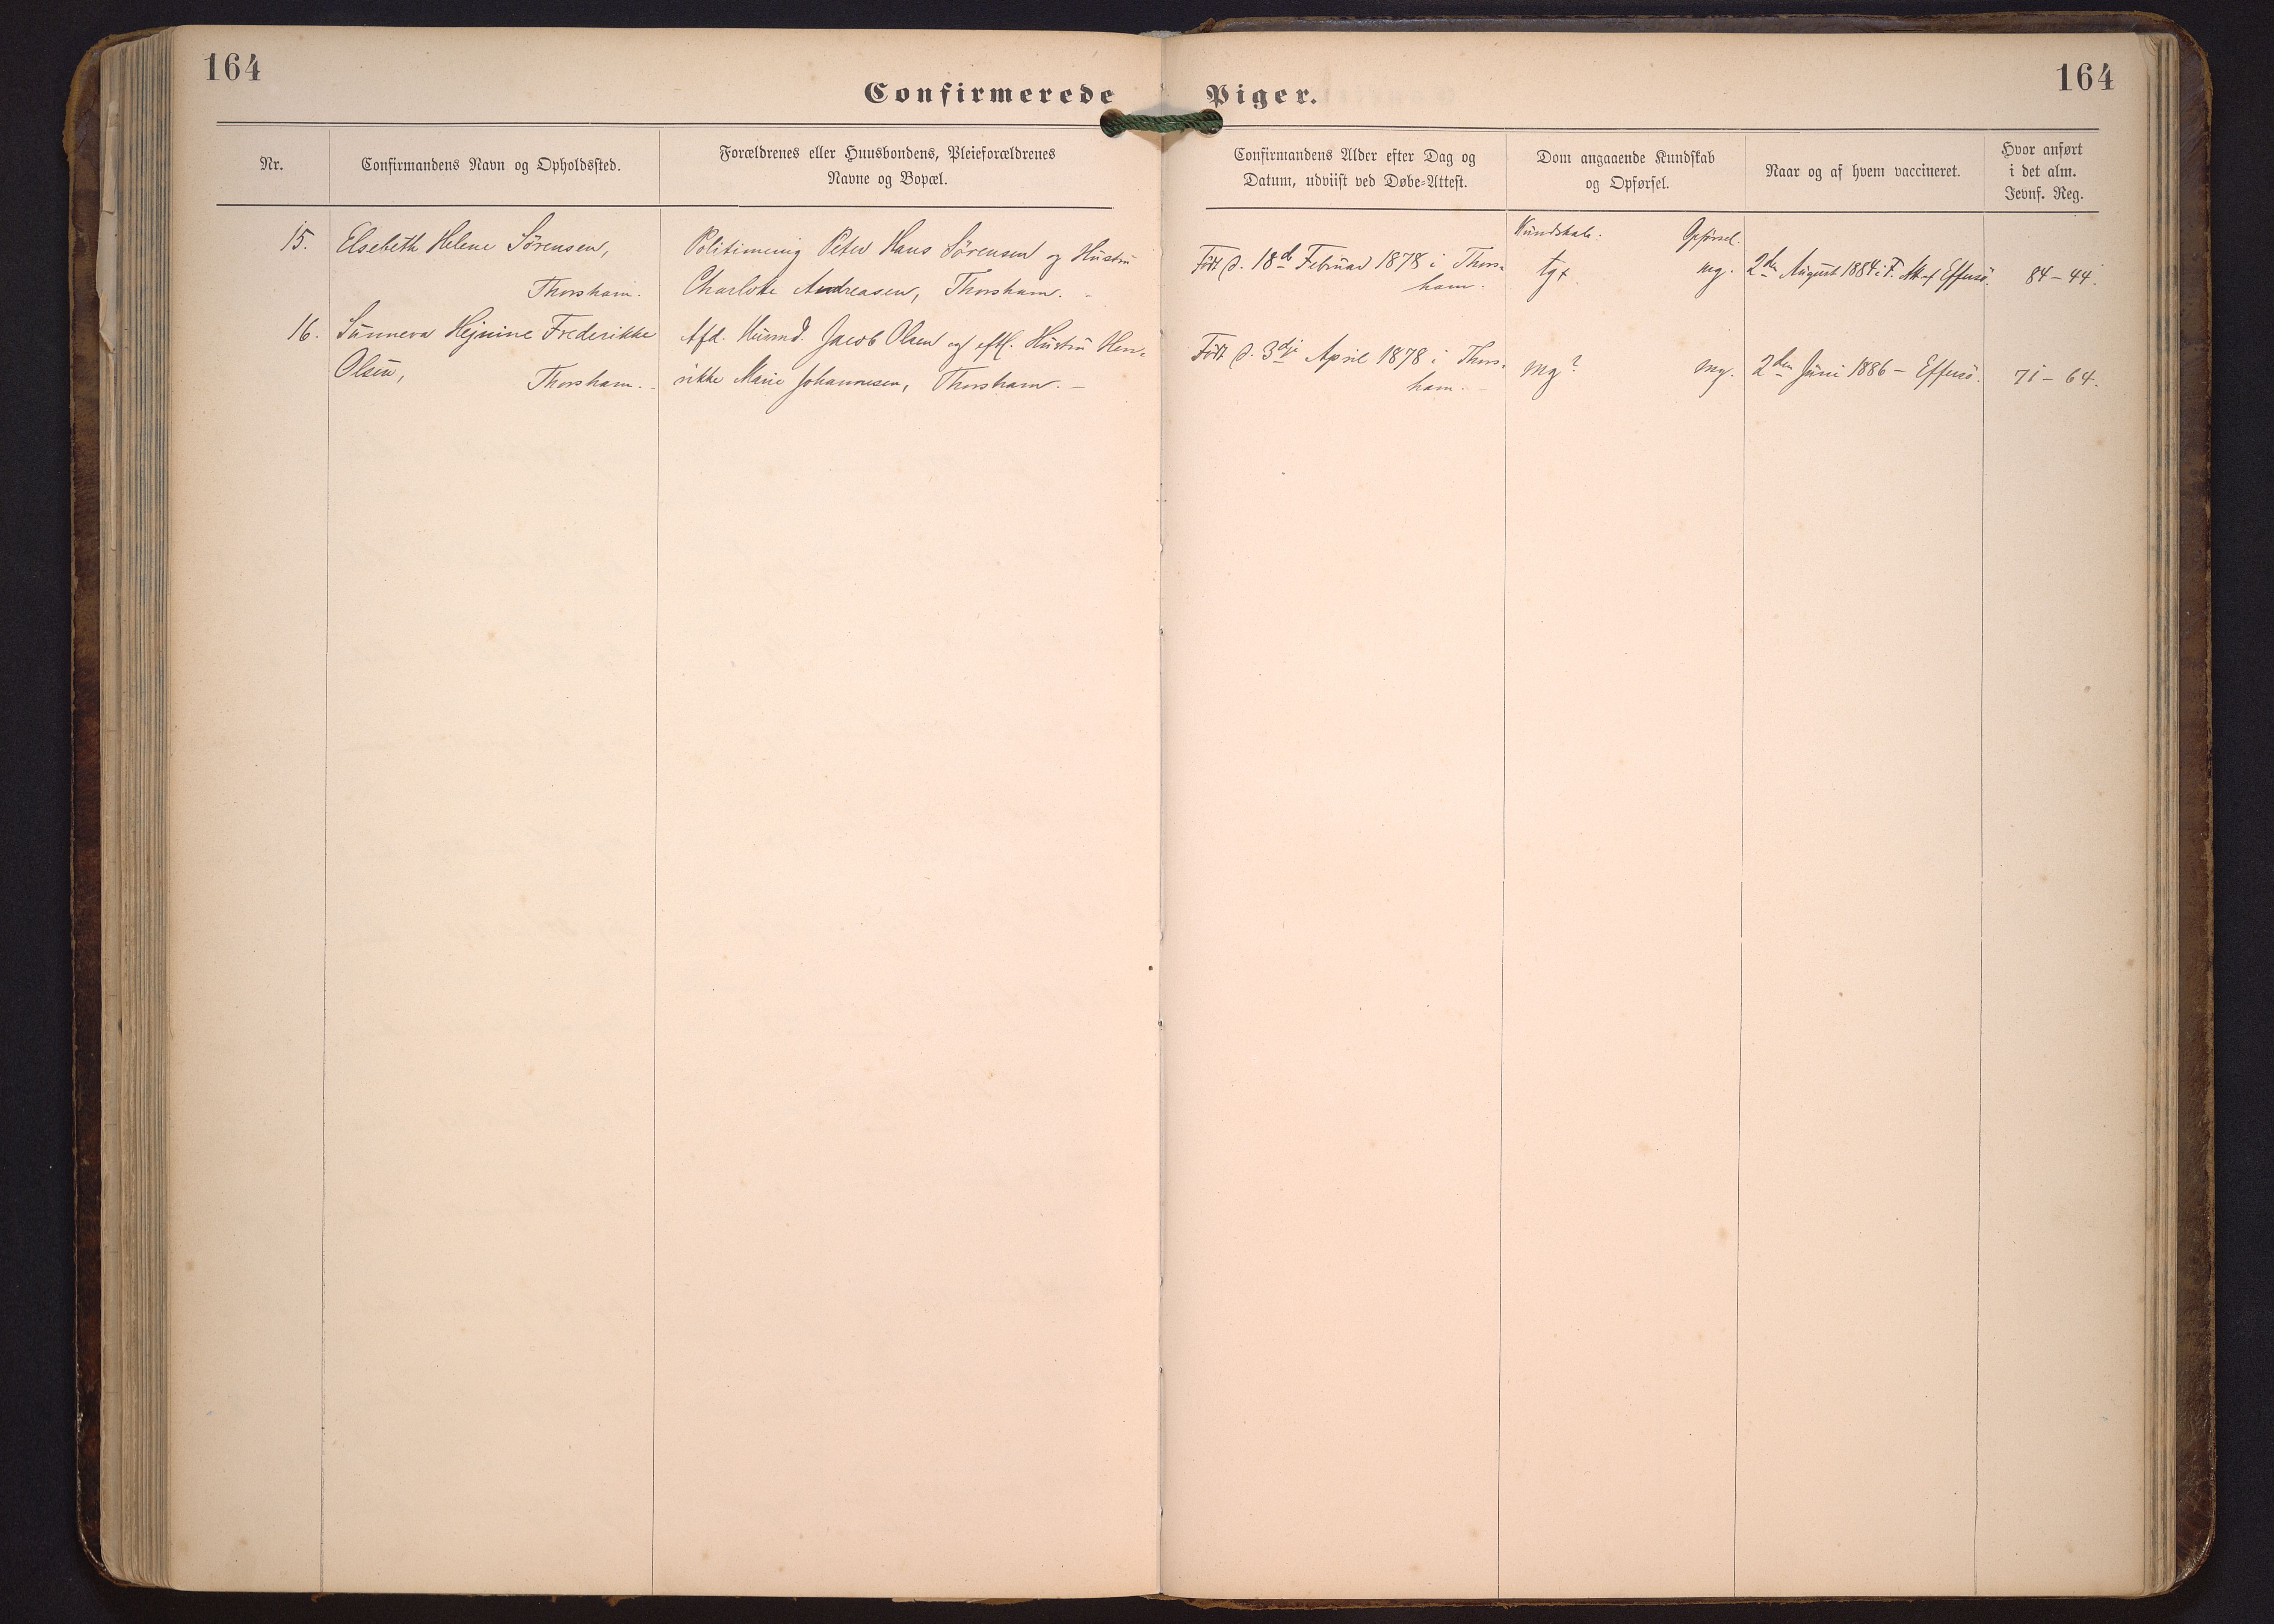 164
164
Confirmerede Piger.
Nr.
Confirmandens Navn og Opholdssted.
Forældrenes eller Huusbondens, Pleieforældrenes
Navne og Bopæl.
Confirmandens Alder efter Dag og
Datum, udviist ved Døbe-Attest.
Dom angaaende Kundskab
og Opførsel.
Naar og af hvem vaccineret.
Hvor anført
i det alm.
Jevnf. Reg.
Kundskab. Opførsel.
15. Elsebeth Helene Sörensen,
Thorshavn.
Politimenig Peter Hans Sörensen og Hustru
Charlotte Andreasen, Thorshavn. -
Født d. 18de Februar 1878 i Thors-
havn.
tg+ mg.
2den August 1884 i F. af Effersö.
84 - 44.
16. Sunneva Hejnine Frederikke
Olsen, Thorshavn.
Afd. Huusmd. Jacob Olsen og eftl. Hustru Hen-
rikke Marie Johannesen, Thorshavn. -
Født d. 3die April 1878 i Thors-
havn. -
mg? mg.
2den Juni 1886 - Effersö.
71 - 64.